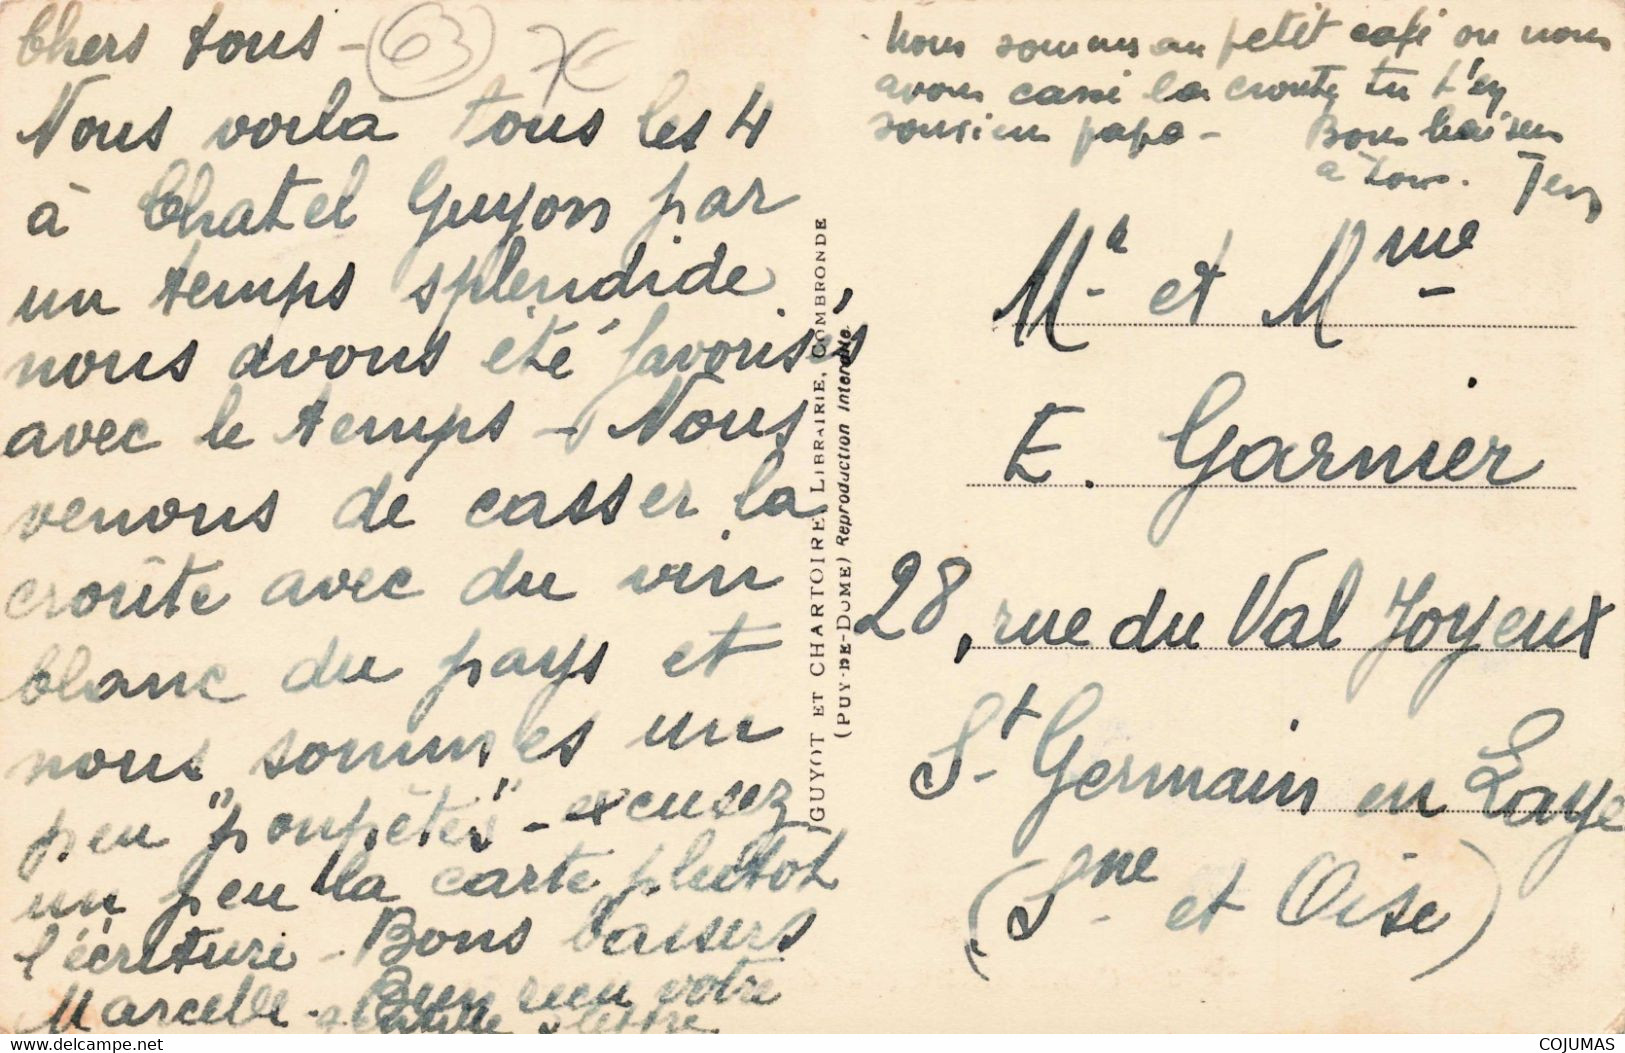 Chers tous -
63
Nous voilà tous les 4
à Chatel Guyon par
un temps splendide,
nous avons été favorisés
avec le temps - Nous
venons de casser la
croûte avec du vin
blanc du pays et
nous sommes un
peu "pompêtes" - excusez
un peu la carte plutôt
l'écriture - Bons baisers
Marcelle - Bien reçu votre
gentille lettre
Nous sommes au petit café ou nous
avons cassé la croute tu t'en
souviens papa - Bons baisers
à tous.
GUYOT ET CHARTOIRE LIBRAIRIE, COMBRONDE
(PUY-DE-DOME) Reproduction Interdite
Mr et Mme
E. Garnier
28, rue du Val Joyeux
St Germain en Laye
(Sne et Oise)
www.delcampe.net
COJUMAS